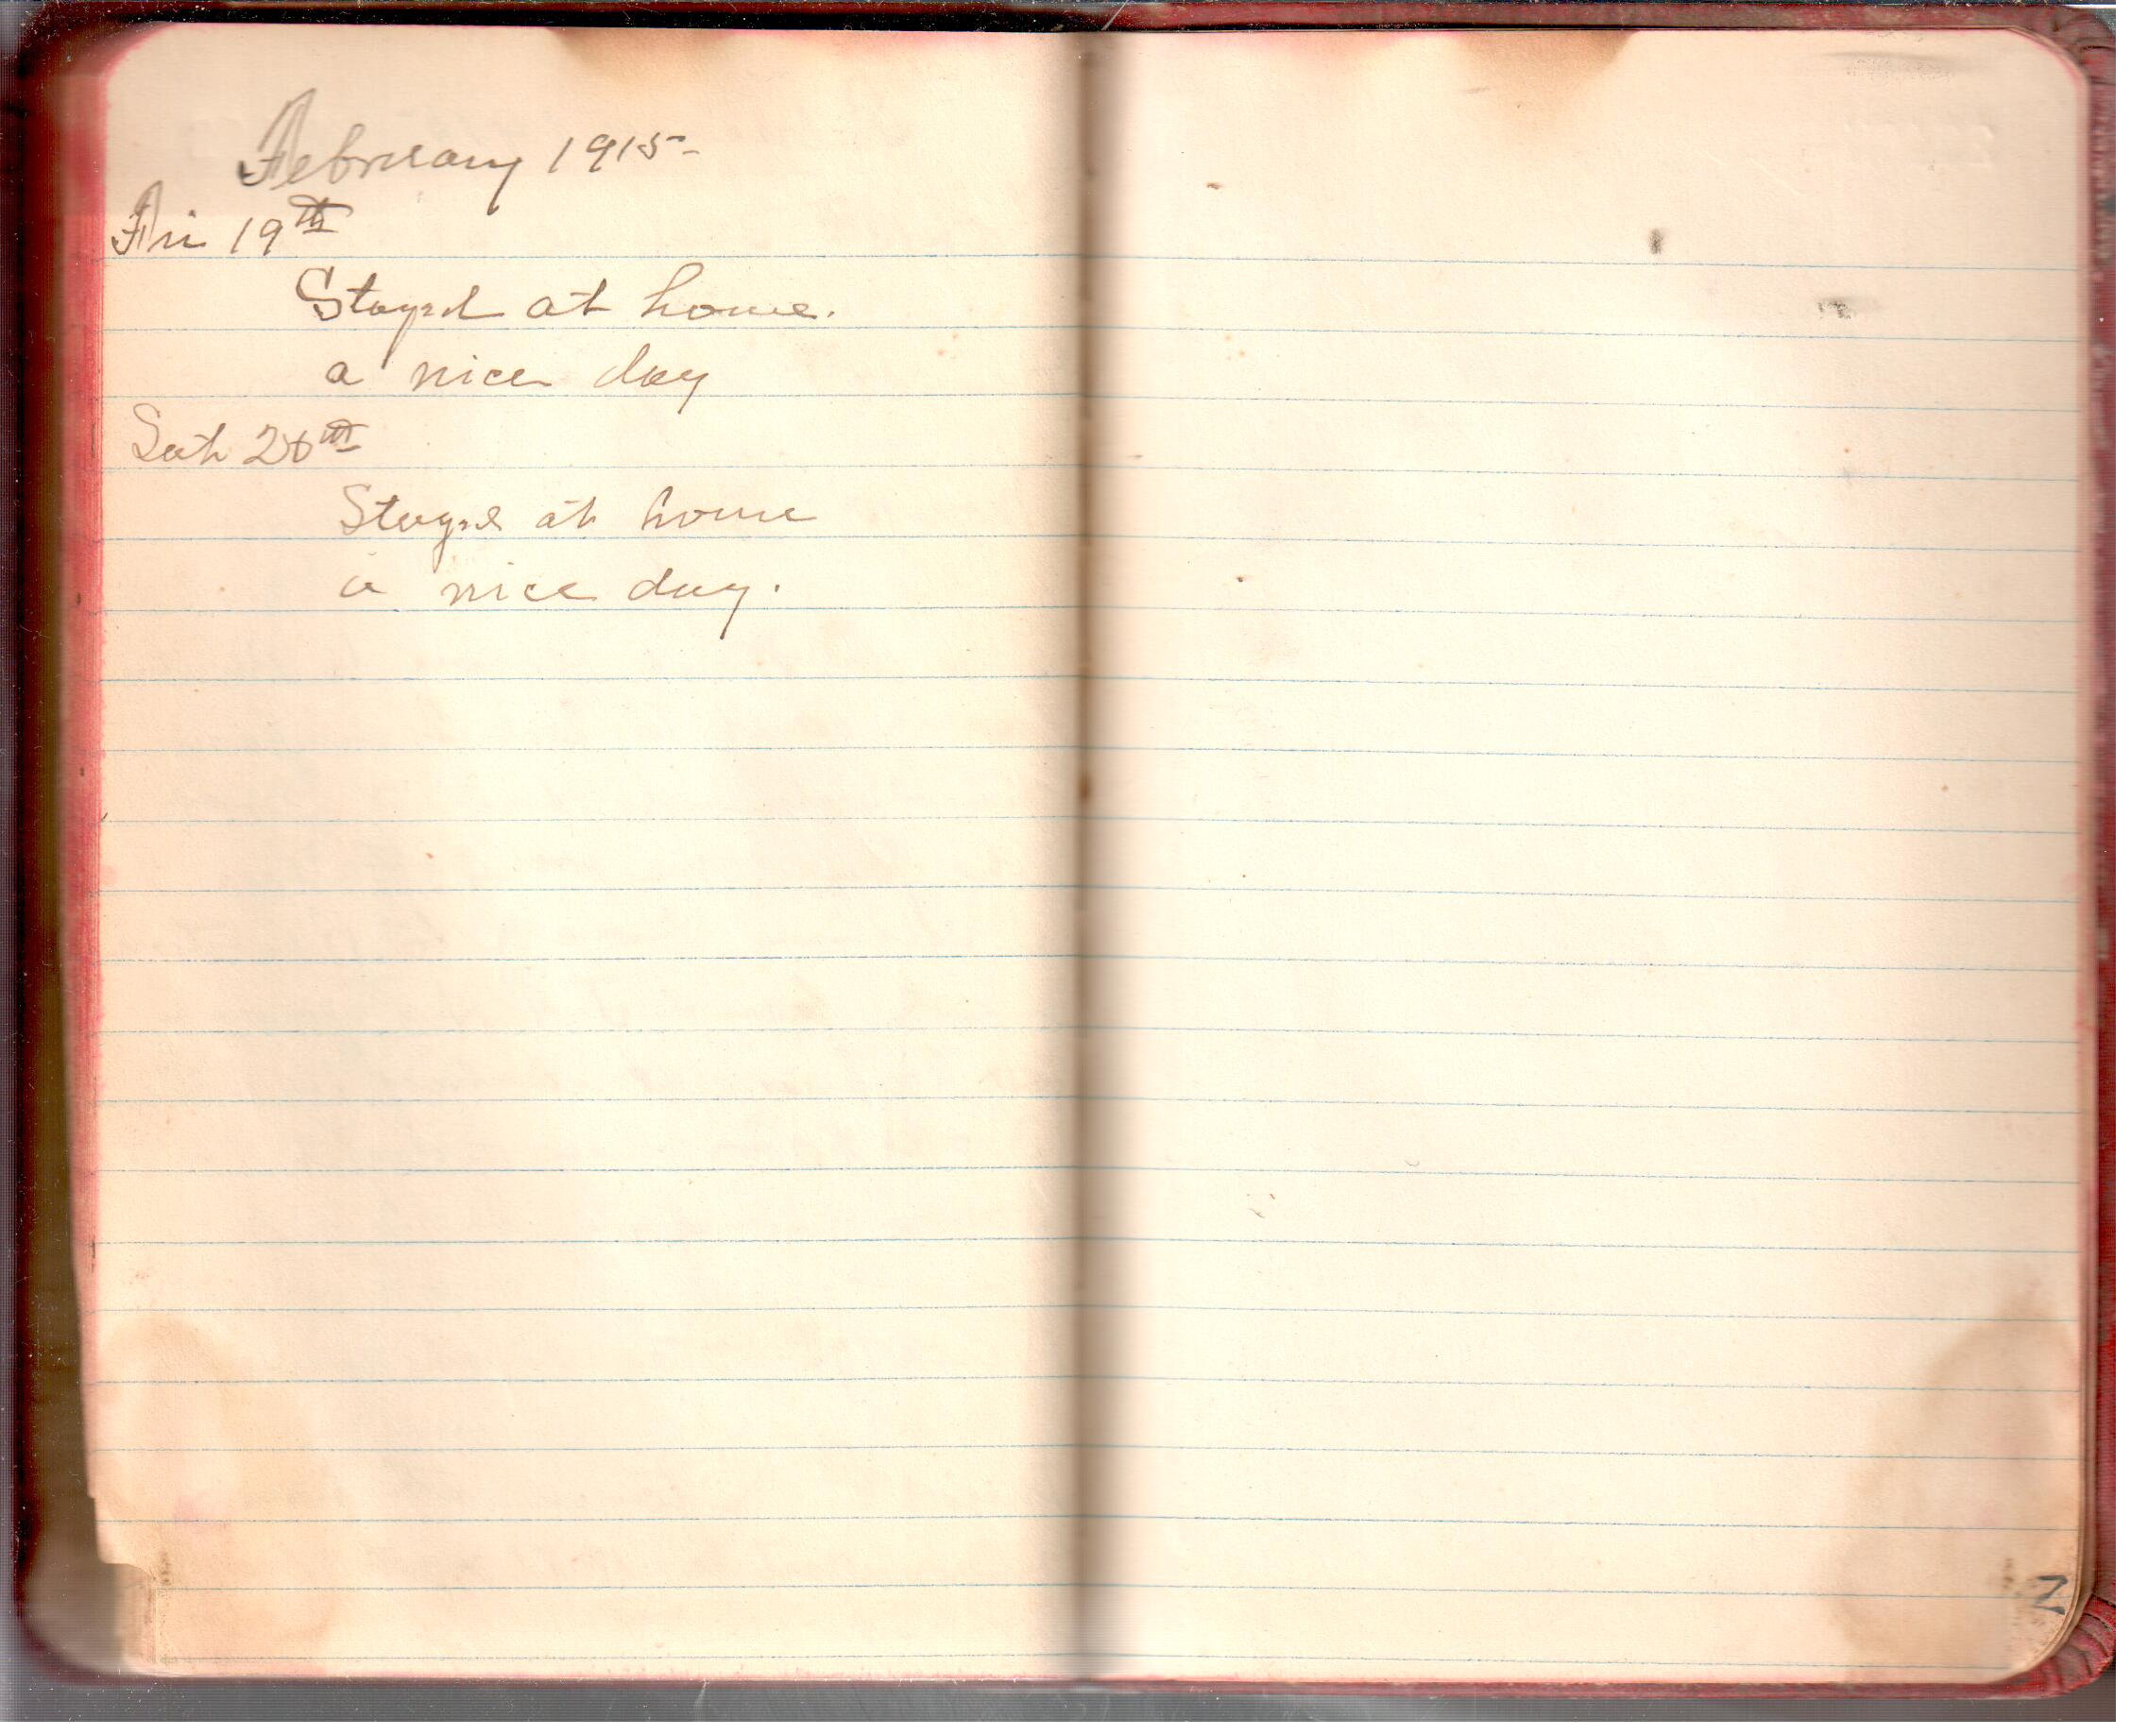 February 1915-
Fri 19th
Stayed at home.
a nice day
Sat 20th
Stayed at home
a nice day.
Z